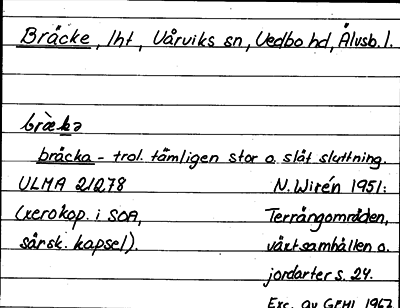 Bräcke, lht, Vårviks sn, Vedbo hd, Älvsb. l.
bræ̀kə
bräcka - trol. tämligen stor o. slät sluttning.
ULMA 21278 N. Wirén 1951:
(xerokop. i SOA, Terrängområden,
särsk. kapsel). växtsamhällen o.
jordarter s. 24.
Exc. av GPHl 1967